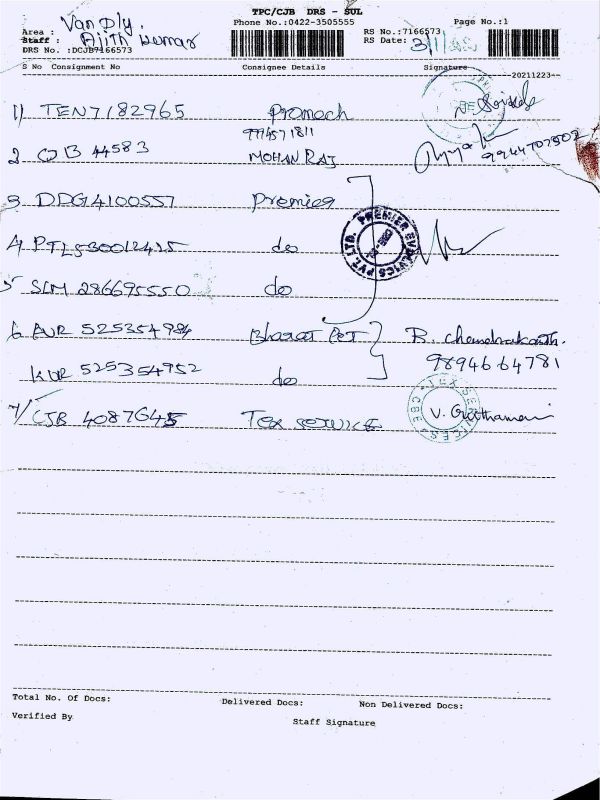 TPC/CJB DRS - SUL
Area : Van Dly.
Phone No.:0422-3505555
Page No.:1
Staff : Ajith kumar
RS No.:7166573
DRS No. :DCJB7166573
RS Date: 3/1/
S No Consignment No Consignee Details Signature
20211223
1) TEN7182965 Promech
9994571811
2 CJB 44583 MOHAN RAJ 9944702502
3 DDG4100557 Premier
4 PTL530012415 do
PREMIER EVOLVICS PVT. LTD.
5 SLM 286695550 do
6 AUR 525354984 Bharat Pet B. Chandrakanth.
9894664781
KUR 525354952 do
7/ CJB 4087645 Tex Service
TEX SERVICES CBE
Total No. Of Docs: Delivered Docs: Non Delivered Docs:
Verified By
Staff Signature